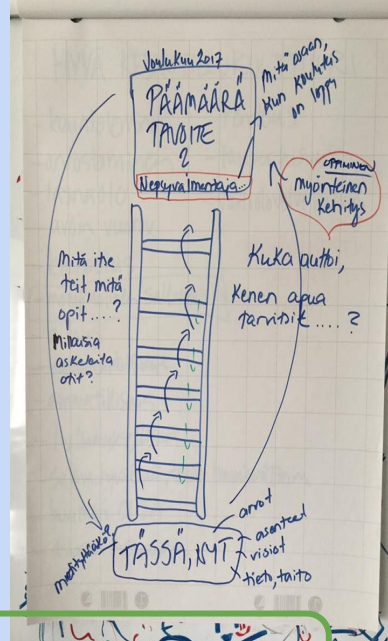 Joulukuu 2017
PÄÄMÄÄRÄ
TAVOITE
?
Nepsyvalmentaja...
Mitä osaan,
kun koulutus
on loppu
OPPIMINEN
myönteinen
kehitys
Mitä itse
teit, mitä
opit....?
Millaisia
askeleita
otit?
Kuka auttoi,
kenen apua
tarvitsit ....?
TÄSSÄ, NYT
arvot
asenteet
visiot
tieto, taito